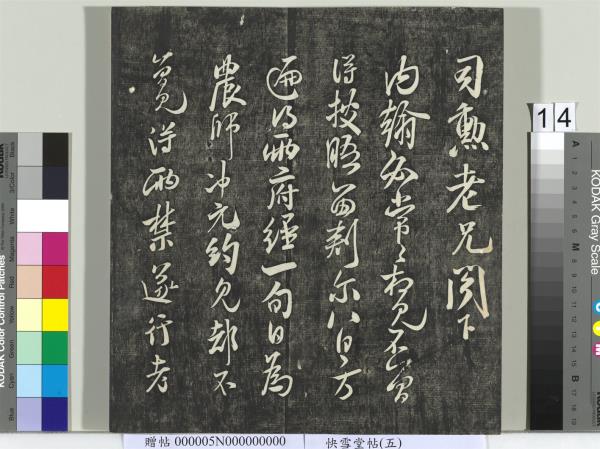 司勳老兄閣下
内翰必常〻相見不曾
得披晤留刹尔八日方
遍得兩府經一旬日為
農師冲元約見却不
得兩禁遂行老
14
KODAK Gray Scale
A 1 2 3 4 5 6 M 8 9 10 11 12 13 14 15 B 17 18 19
KODAK Color Control Patches
Black
3/Color
White
Magenta
Red
Yellow
Green
Cyan
Blue
贈帖 000005N000000000 快雪堂帖(五)